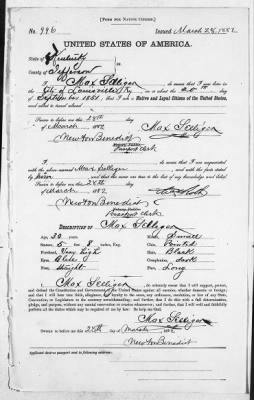 [FORM FOR NATIVE CITIZEN.]
No. 996 Issued March 28, 1882
UNITED STATES OF AMERICA.
State of Kentucky
County of Jefferson
I, Max Selliger, do swear that I was born in
the City of Louisville Ky on the
September 1851, that I am a Native and Loyal Citizen of the United States,
and about to travel abroad.
Sworn to before me this 24th day
of March 1882 Max Selliger
Newton Benedict
Passport Clerk
I, do swear that I am acquainted
with the above named Max Selliger and with the facts stated by
him and that the same are true to the best of my knowledge and belief.
Sworn to before me this 24th day
of March 1882
Newton Benedict
Passport Clerk
DESCRIPTION OF Max Selliger
Age, 30 Mouth, Small
Stature, 5 ft 8 inches, Eng. Chin, Pointed
Forehead, Very high Hair, Black
Eyes, Complexion, dark
Nose, Straight Face, Long
I, Max Selliger, do solemnly swear that I will support, protect, and
defend the Constitution and Government of the United States against all enemies, whether domestic or foreign;
and that I will bear true faith, allegiance, and loyalty to the same, any ordinance, resolution, or law of any State,
Convention, or Legislature to the contrary notwithstanding; and further, that I do this with a full determination,
pledge, and purpose, without any mental reservation or evasion whatsoever; and further, that I will well and faithfully
perform all the duties which may be required of me by law. So help me God.
Max Selliger
Sworn to before me this 24th day
of March, 1882
Newton Benedict